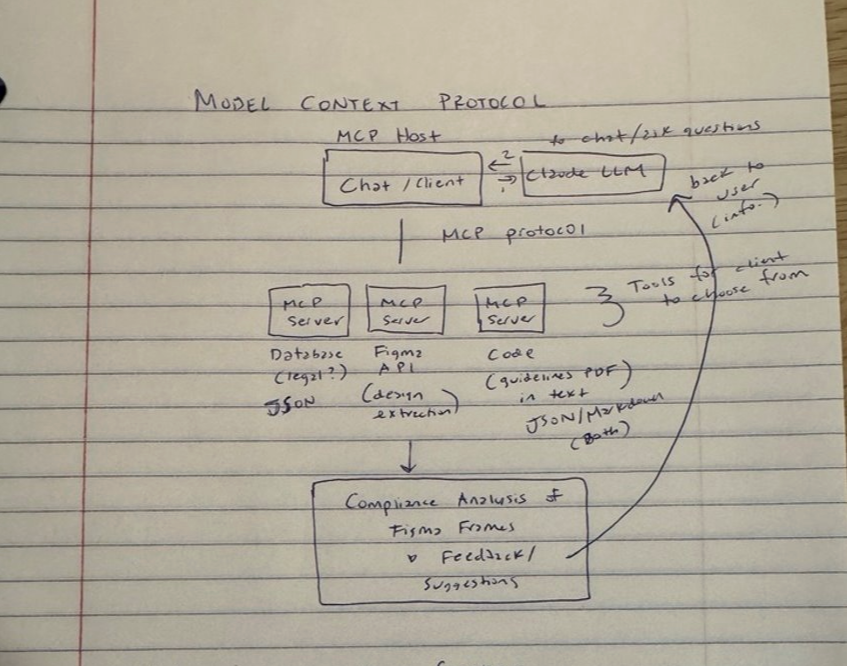 MODEL CONTEXT PROTOCOL
MCP Host
to chat/ask questions
Chat / Client
2
1
Claude LLM
back to
user
(info.)
MCP protocol
MCP
Server
MCP
Server
MCP
Server
3
Tools for client
to choose from
Database
(legal?)
JSON
Figma
API
(design
extraction)
Code
(guidelines PDF)
in text
JSON/Markdown
(Both)
Compliance Analysis of
Figma Frames
Feedback/
Suggestions